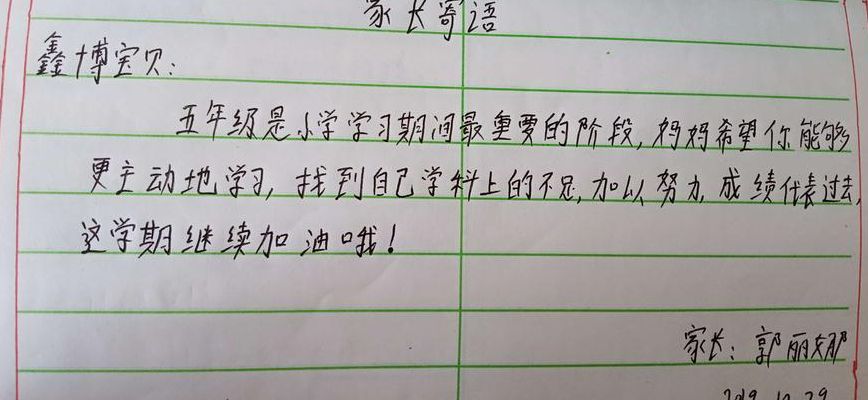 家长寄语
鑫博宝贝:
五年级是小学学习期间最重要的阶段,妈妈希望你能够
更主动地学习,找到自己学科上的不足,加以努力,成绩代表过去,
这学期继续加油哦!
家长:郭丽娜